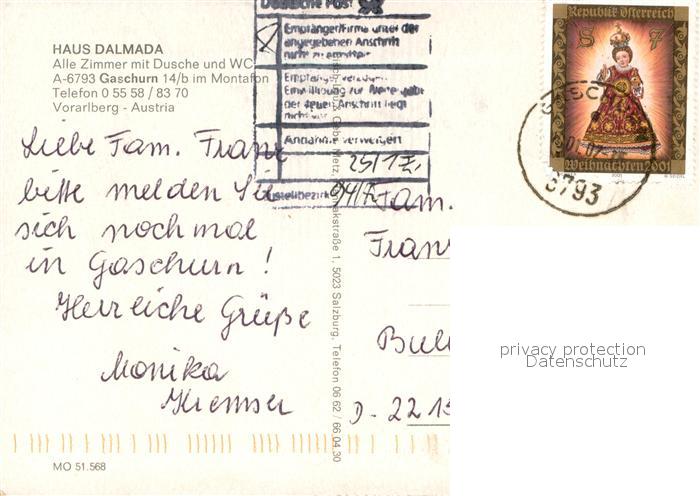 HAUS DALMADA
Alle Zimmer mit Dusche und WC
A-6793 Gaschurn 14/b im Montafon
Telefon 0 55 58 / 83 70
Vorarlberg - Austria
Deutsche Post
Empfänger/Firma unter der
angegebenen Anschrift
nicht zu ermitteln
Empfänger verzogen
Einwilligung zur Weitergabe
der neuen Anschrift liegt
nicht vor
Annahme verweigert
25/1
Zustellbezirk
Republik Österreich
S 7
Weihnachten 2001
2001
GASCH
6793
Liebe Fam. Franz
bitte melden Sie
sich nochmal
in Gaschurn!
Herzliche Grüße
Monika
Kremser
Metz, straße 1, 5023 Salzburg, Telefon 06 62 / 66 04 30
Fam.
Fran
Bu
D- 22 15
privacy protection
Datenschutz
MO 51.568